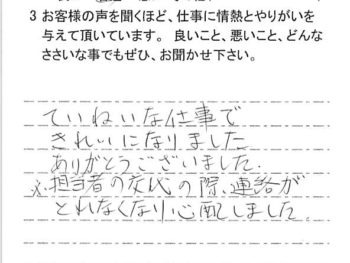 3 お客様の声を聞くほど、仕事に情熱とやりがいを
与えて頂いています。 良いこと、悪いこと、どんな
ささいな事でもぜひ、お聞かせ下さい。
ていねいな仕事で
きれいになりました
ありがとうございました.
※担当者の交代の際、連絡が
とれなくなり心配しました。